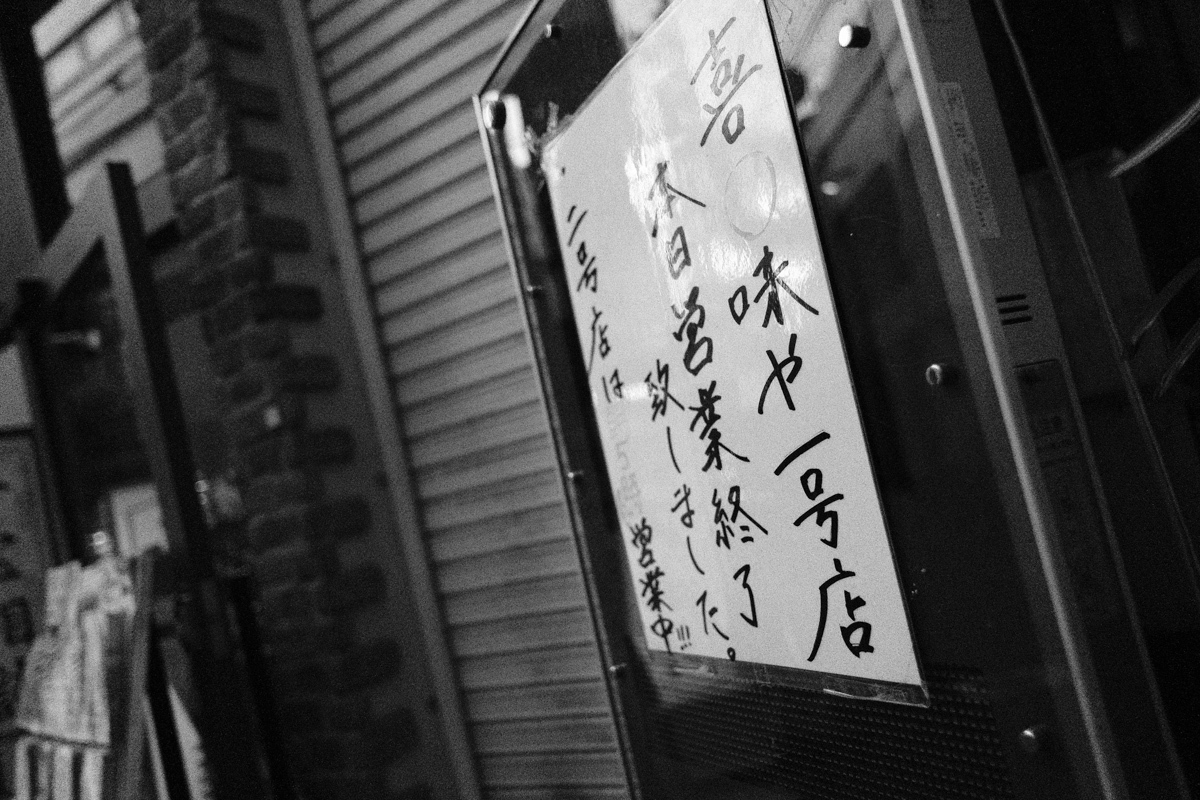 喜〇味や一号店
本日営業終了
致しました。
二号店は
営業中!!!